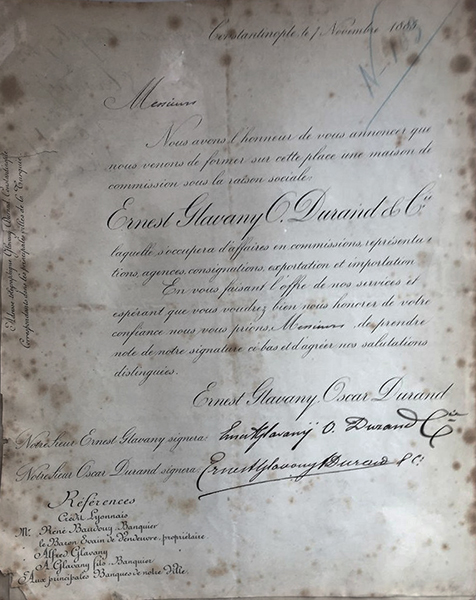 Constantinople, le 1 Novembre 1885
Messieurs
Nous avons l'honneur de vous annoncer que
nous venons de former sur cette place une maison de
commission sous la raison sociale:
Ernest Glavany O. Durand & Cie
laquelle s'occupera d'affaires en commissions, représenta
tions, agences, consignations, exportation et importation
En vous faisant l'offre de nos services et
espérant que vous voudrez bien nous honorer de votre
confiance nous vous prions, Messieurs de prendre
note de notre signature ci-bas et d'agréer nos salutations
distinguées.
Ernest Glavany, Oscar Durand
Notre sieur Ernest Glavany signera: Ernest Glavany O. Durand Cie
Notre sieur Oscar Durand signera: Ernest Glavany Durand & C.
Références
Crédit Lyonnais
Mr. René Baudouy Banquier
le Baron Evain de Vendeuvre, propriétaire
Alfred Glavany
A. Glavany fils Banquier
Aux principales Banques de notre Ville.
Adresse télégraphique Glavany Durand Constantinople
Correspondants dans les principales villes de la Turquie